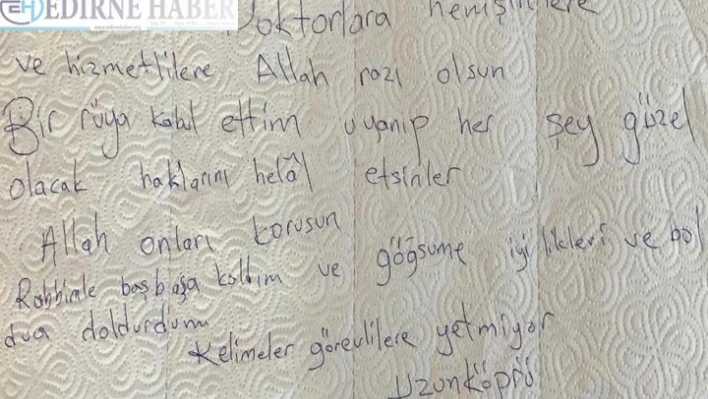 EDİRNE HABER
Doktorlara hemşirelere
ve hizmetlilere Allah razı olsun
Bir rüya kabul ettim uyanıp her şey güzel
olacak haklarını helâl etsinler
Allah onları korusun
Rabbimle başbaşa kaldım ve göğsüme iyilikleri ve bol
dua doldurdum
Kelimeler görevlilere yetmiyor
Uzunköprü